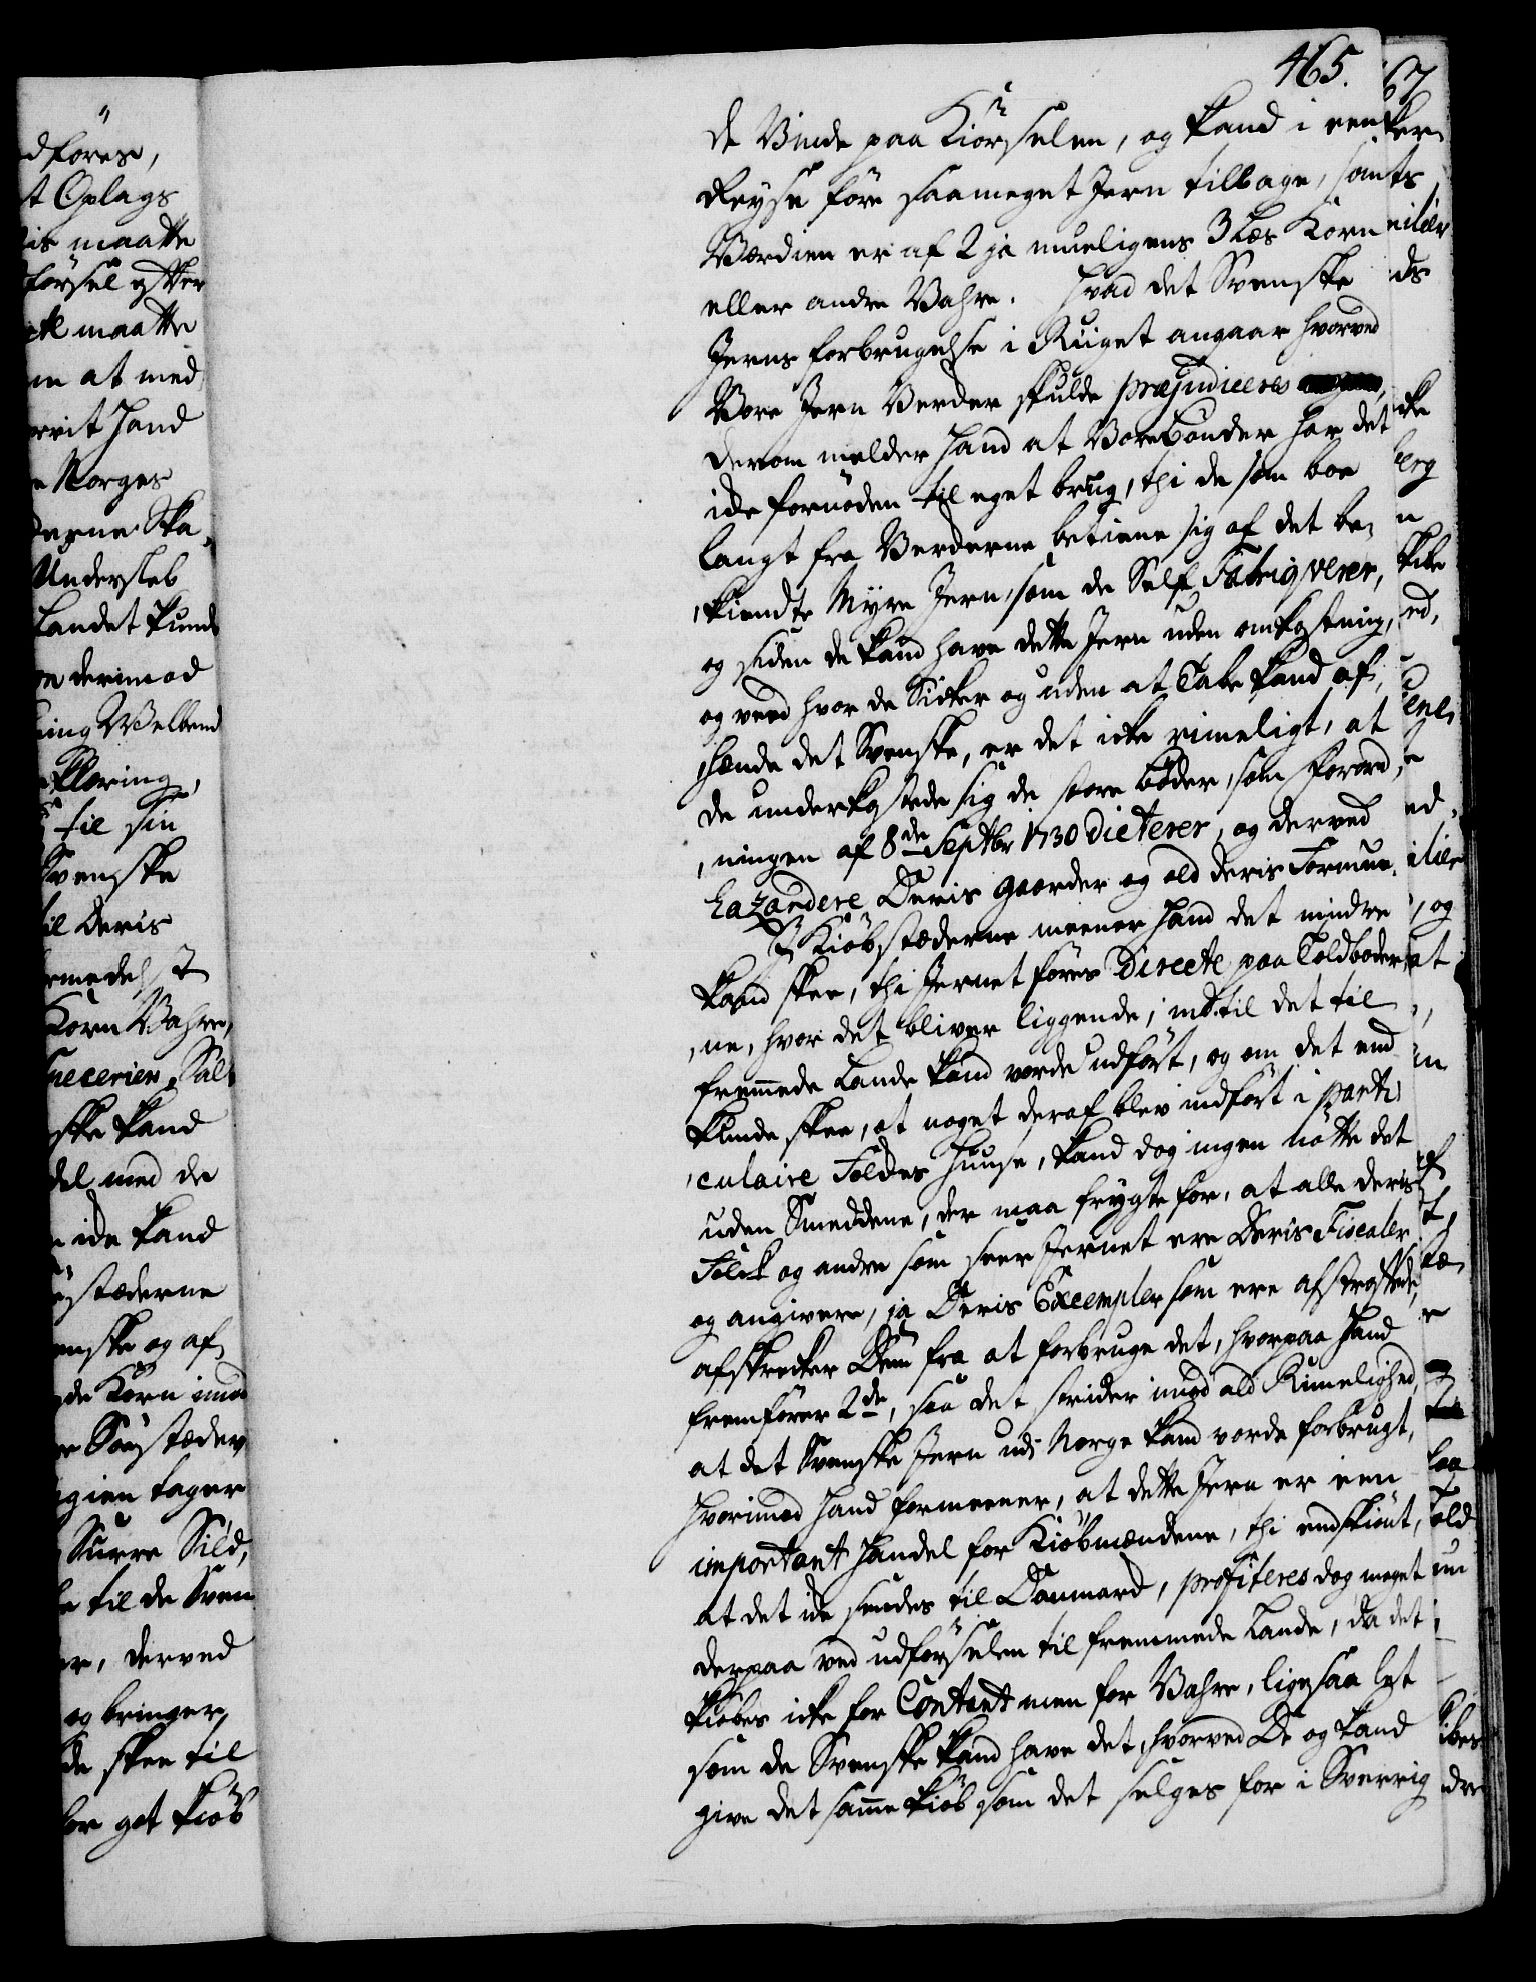 465.
de Vinde paa Kiörselen, og kand i een
Reyse före saameget Jern tilbage, som
Værdien er af 2 ja mueligens 3 Læs Korn
eller andre Vahre. Hvad det Svenske
Jerns forbrugelse i Riiget angaar hvorved
Vore Jern Verker skulde præjudiceres
derom melder Hand at Vore bönder har det
icke fornöden til eget brug, thi de som boe
langt fra Verkerne betiene sig af det be-
kiendte Myre Jern, som de Self Fabriqverer,
og siden de kand have dette Jern uden omkostning,
og veed hvor de Sicker og uden at Tabe kand af-
hænde det Svenske, er det icke rimeligt, at
de underkastede sig de store böder, som Forord-
ningen af 8de Septbr 1730 Dicterer, og derved
hazardere Deris gaarder og ald deris Formue.
I Kiöbstæderne meener Hand det mindre
kand skee, thi Jernet föres Directe paa Toldboder-
ne, hvor det bliver liggende, indtil det til
fremmede Lande kand vorde udfört, og om det end
kunde skee, at noget deraf blev indfört i parti-
culaire Folckes Huuse, kand dog ingen nötte det
uden Smeddene, der maa frygte for, at alle deris
Folck og andre som seer Jernet ere Deris Fiscaler
og angivere, ja Deris Exempler som ere afstraffede,
afskrecker Dem fra at forbruge det, hvorpaa Hand
fremförer 2de, saa det strider imod ald Rimelighed,
at det Svenske Jern udi Norge kand vorde forbrugt,
Hvorimod Hand formeener, at dette Jern er een
important Handel for Kiöbmændene, thi endskiönt,
at det icke sendes til Danmarck, profiteres dog meget
derpaa ved udförselen til fremmede Lande, da det
kiöbes icke for Contant men for Vahre, ligesaa let
som de Svenske kand have det, hvorved De og kand
give det samme kiöb som det selges for i Sverrig